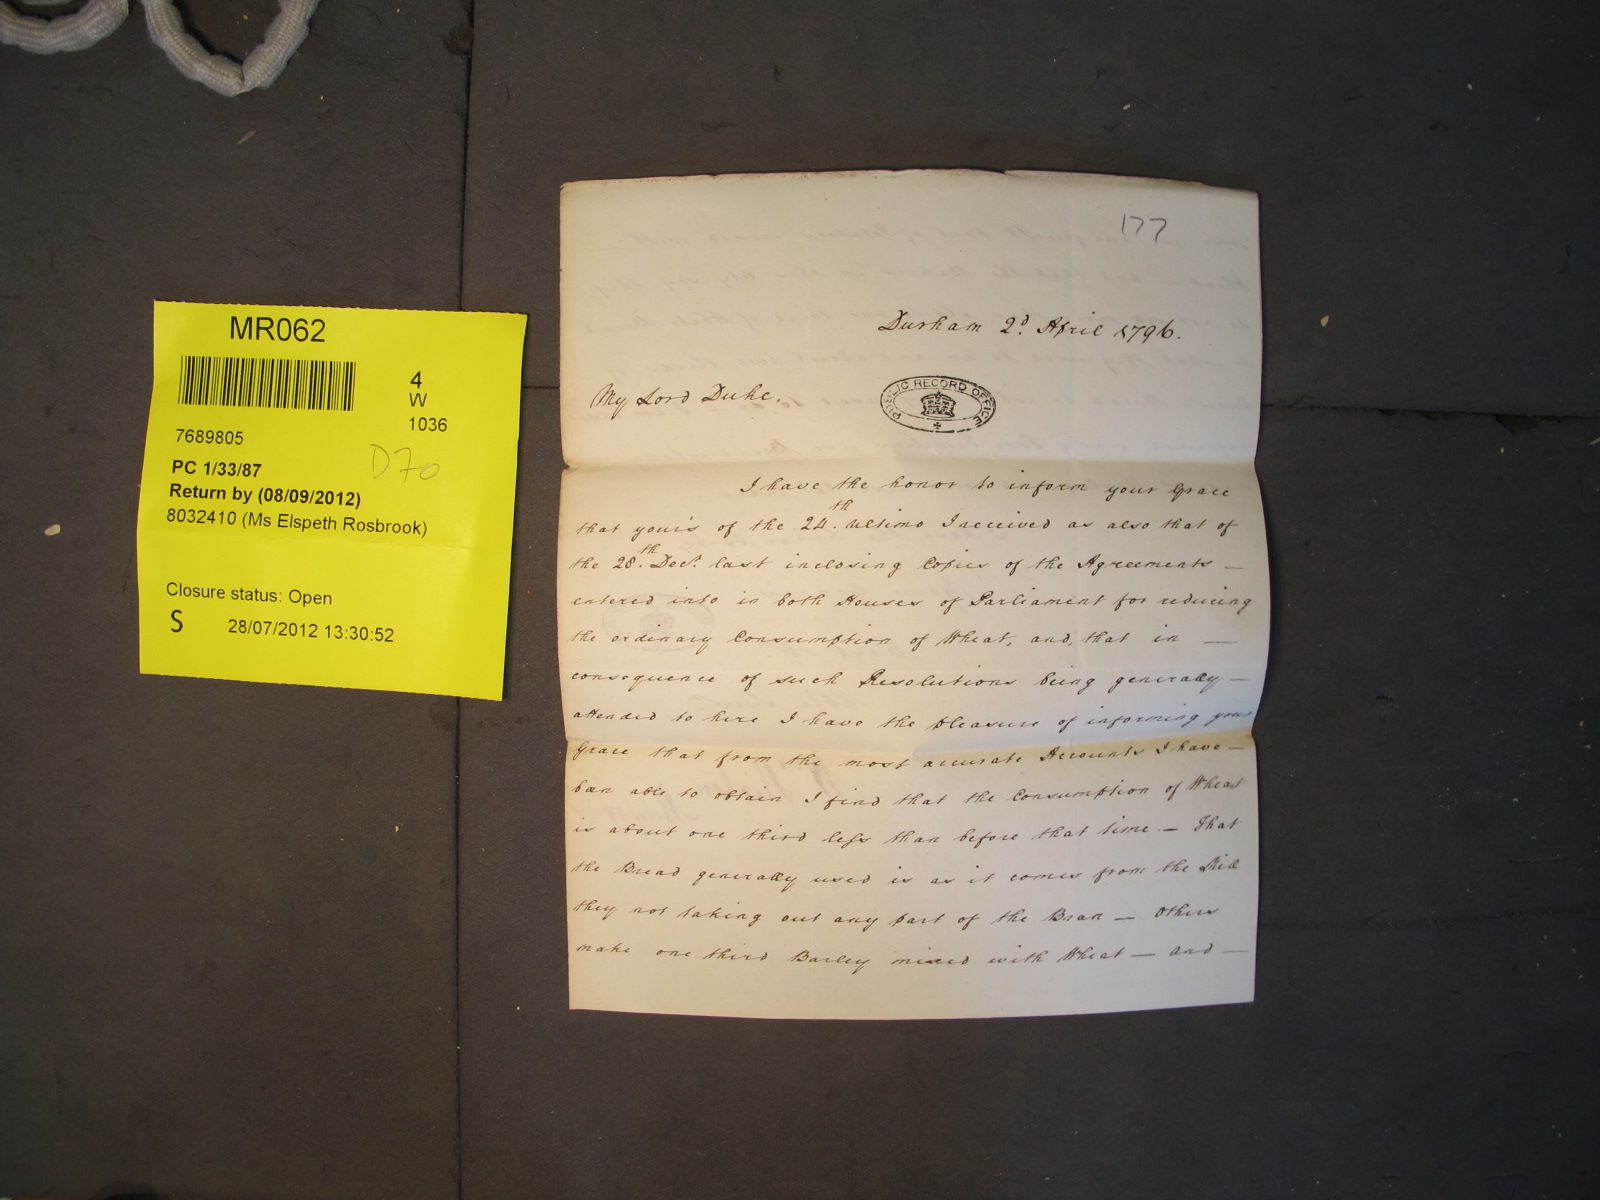 MR062
4
W
1036
7689805
D70
PC 1/33/87
Return by (08/09/2012)
8032410 (Ms Elspeth Rosbrook)
Closure status: Open
S 28/07/2012 13:30:52
177
Durham 2d. April 1796.
PUBLIC RECORD OFFICE
My Lord Duke,
I have the honor to inform your Grace
that your's of the 24.th Ultimo I received as also that of
the 28.th Decr. last inclosing Copies of the Agreements —
entered into in both Houses of Parliament for reducing
the ordinary Consumption of Wheat, and, that in —
consequence of such Resolutions being generally —
attended to here I have the pleasure of informing your
Grace that from the most accurate Accounts I have —
been able to obtain I find that the Consumption of Wheat
is about one third less than before that time. — That
the Bread generally used is as it comes from the Mill
they not taking out any part of the Bran — Others
make one third Barley mixed with Wheat — and —